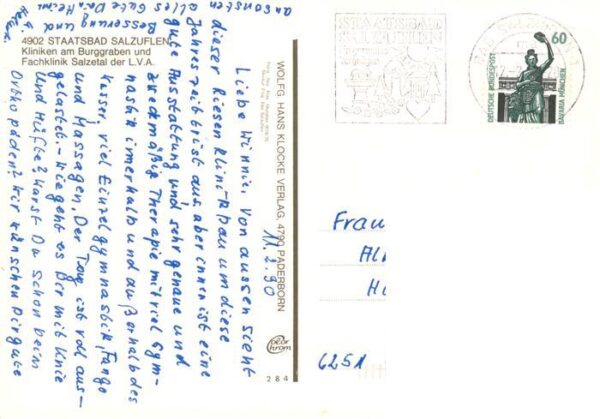 4902 STAATSBAD SALZUFLEN
Kliniken am Burggraben und
Fachklinik Salzetal der L.V.A.
WOLFG. HANS KLOCKE VERLAG, 4790 PADERBORN
284
11.2.90
Liebe Winnie. Von aussen sieht
dieser Riesen Klinikbau um diese
Jahreszeit trist aus, aber innen ist eine
gute Ausstattung und sehr genaue und
zweckmäßig Therapie mit viel Gym-
nastik innerhalb und außerhalb des
Wasser, viel Einzelgymnastik, Fango
und Massagen. Der Tag ist voll aus-
gelastet. - Wie geht es Dir mit Knie
und Hüfte? Warst Du schon beim
Orthopäden? Wir wünschen Dir gute
Besserung und
ansonsten alles Gute Dein Heini
STAATSBAD
SALZUFLEN
60
DEUTSCHE BUNDESPOST
BAVARIA MÜNCHEN
Frau
6251